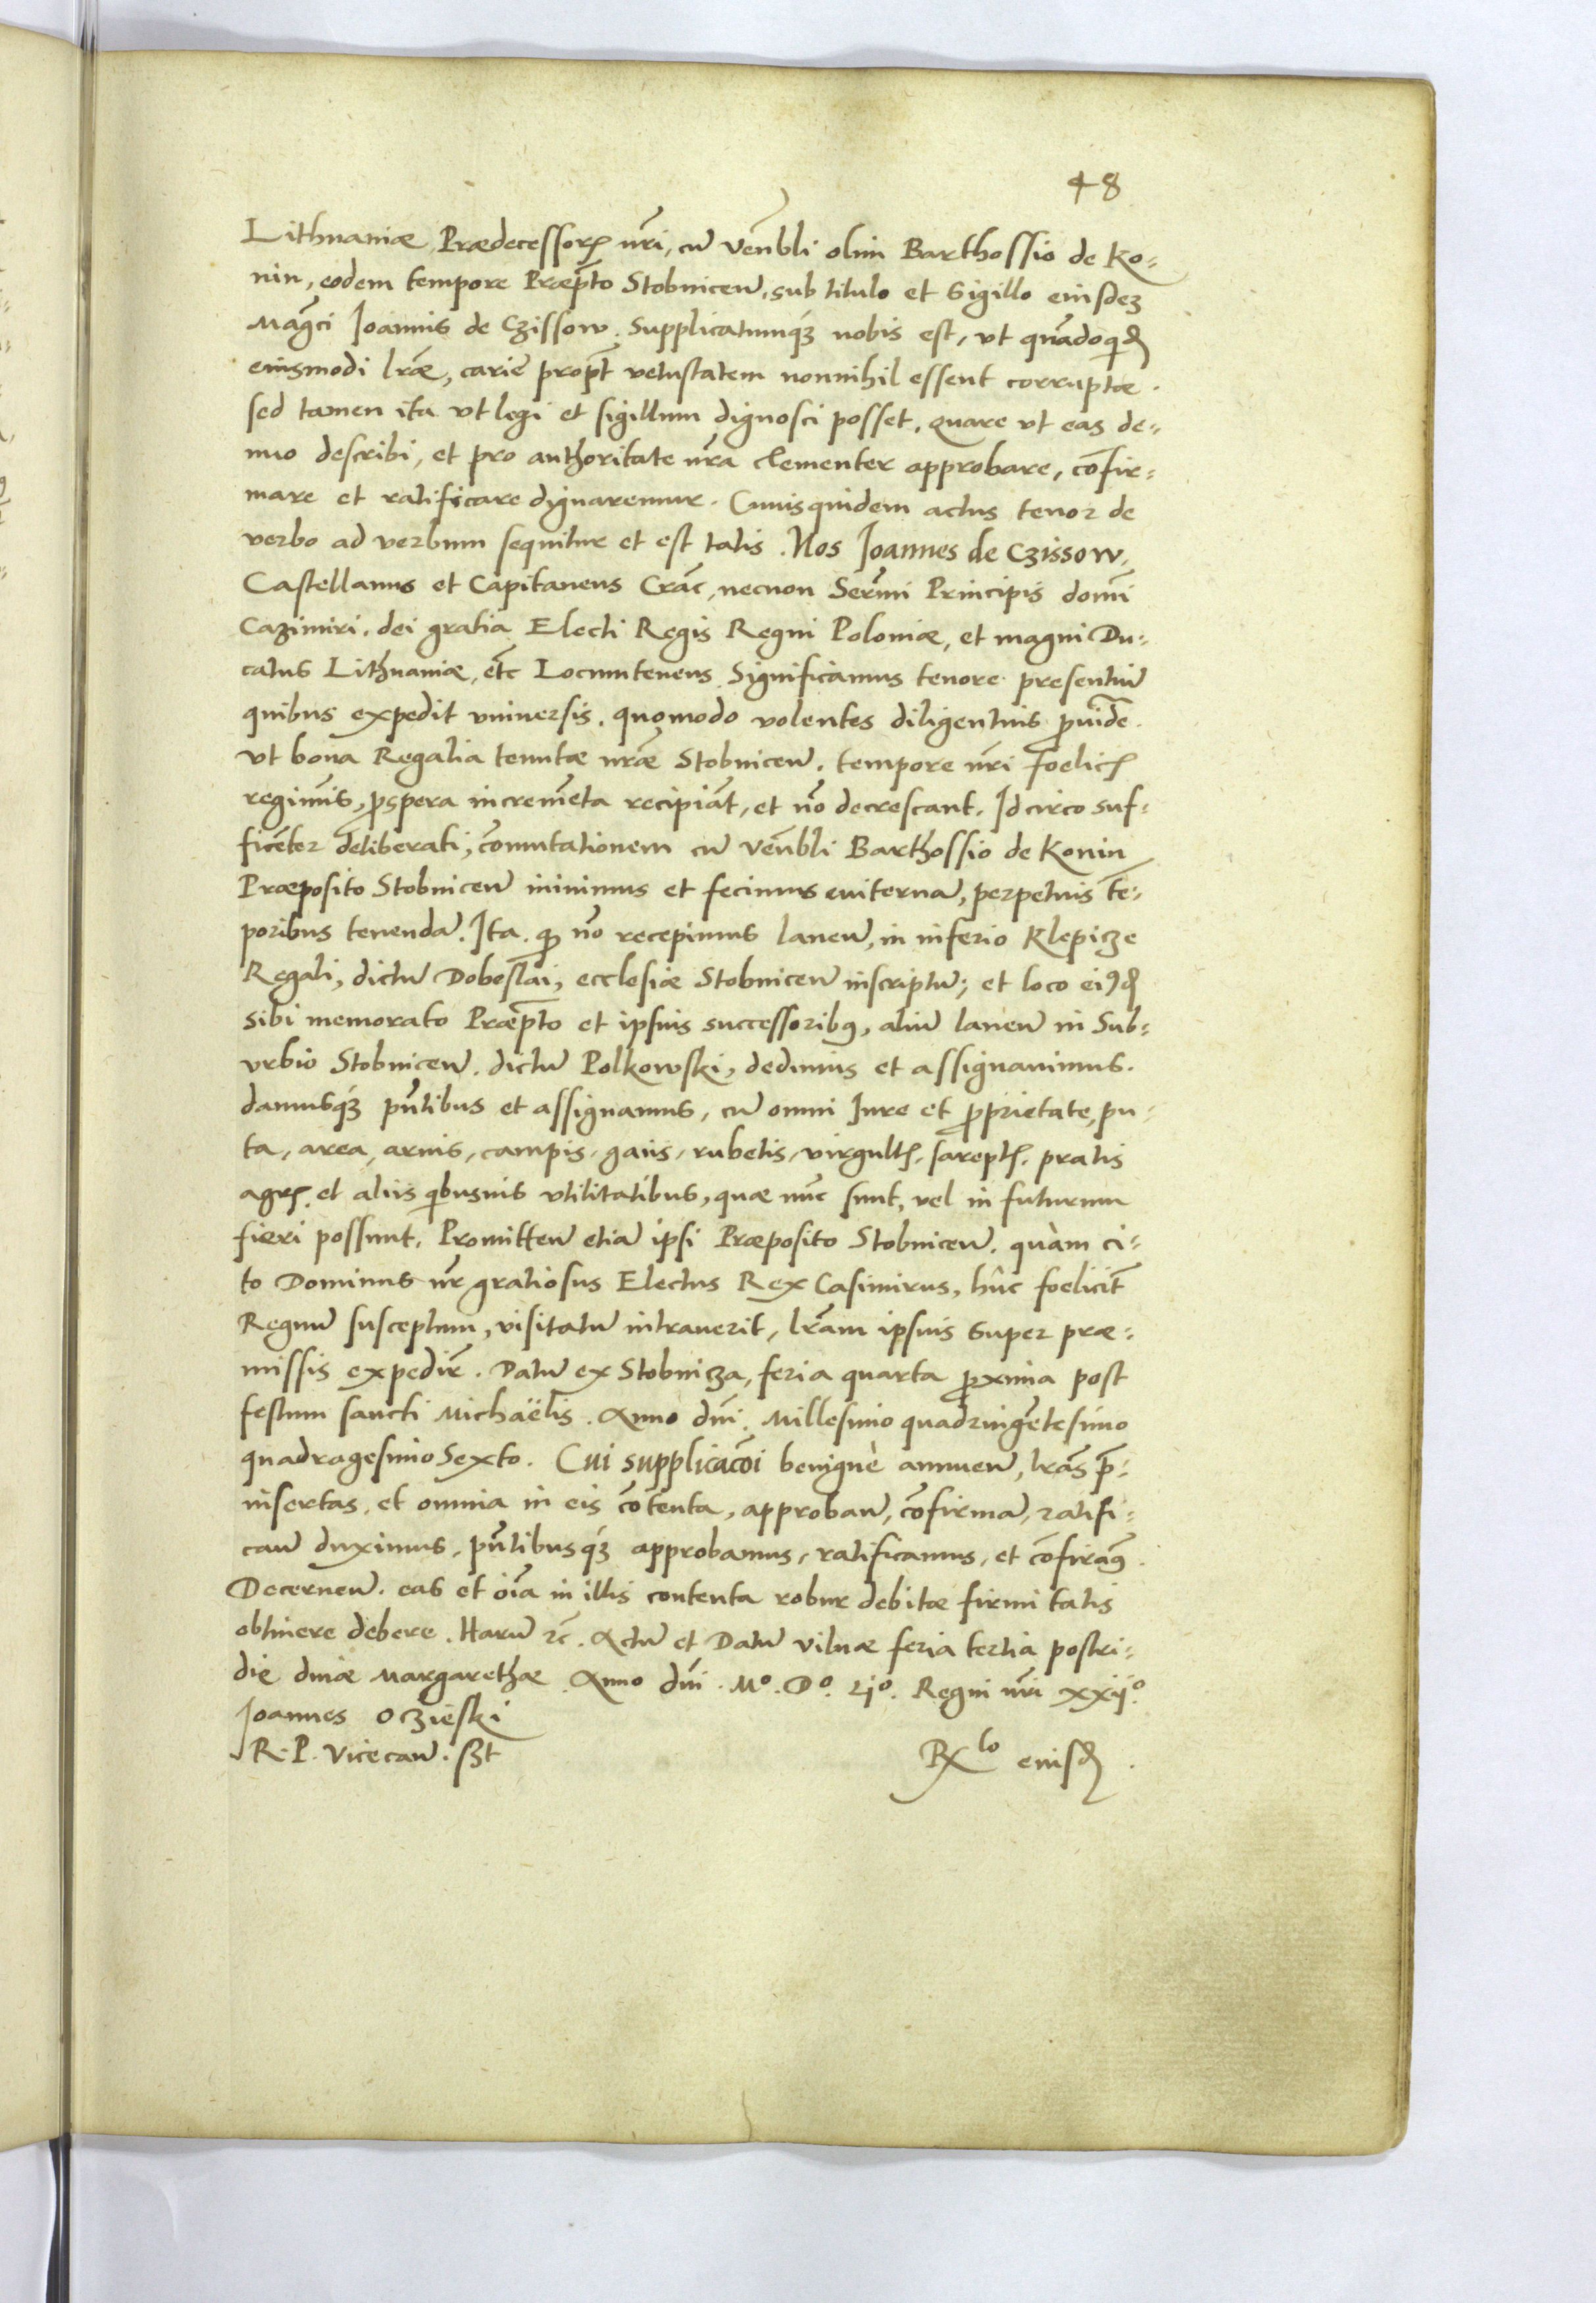 48
Lithuaniæ, Prædecessoris nr̃i, cũ Ven̑bli olim Barthossio de Ko-
nin, eodem tempore Præp̃to Stobnicen̑, sub titulo et Sigillo eiusdeȝ
Mag̃ci Joannis de Czissow. Supplicatumq́ȝ nobis est, vt quãdoq̃d
eiusmodi lr̃æ, cariẽ propt̃ vetustatem nonnihil essent corruptæ.
sed tamen ita vt legi et sigillum dignosci posset, quare vt eas de-
nuo describi, et pro authoritate nr̃a clementer approbare, cõfir-
mare et ratificare dignaremur. Cuiusquidem actus tenor de
verbo ad verbum sequitur et est talis. Nos Joannes de Czissow,
Castellanus et Capitaneus Crac̃, necnon Serm̃i Principis domĩ
Cazimiri, dei gratia Electi Regis Regni Poloniæ, et magni Du-
catus Lithuaniæ, etc̃ Locumtenens Significamus tenore presentiũ
quibus expedit vniuersis. quomodo volentes diligentius p̃uidẽ.
vt bona Regalia tenutæ nr̃æ Stobnicen̑. tempore nr̃i foelicis
regimĩs, p̃spera increm̃eta recipiãt, et nõ decrescant. Idcirco suf-
ficẽter deliberati, cõmutationem cũ Ven̑bli Barthossio de Konin
Præposito Stobnicen̑ iniuimus et fecimus euiternã, perpetuis tẽ-
poribus tenendã. Ita. qȝ nõ recepimus laneũ, in inferio Klepicze
Regali, dictũ Dobeslai, ecclesiæ Stobnicen̑ inscriptũ; et loco ei9d
sibi memorato Præp̃to et ipsius successoribȝ, aliũ laneũ in Sub-
vrbio Stobnicen̑. dictũ Polkowski, dedimus et assignauimus.
damusq́ȝ pñtibus et assignamus, cũ omni Iure et p̃prietate, pu-
ta, area, aruis, campis, gaiis, rubetis, virgultis, sareptis, pratis
agris, et aliis q̃busuis vtilitatibus, quæ nũc sunt, vel in futurum
fieri possunt. Promitten̑ etiã ipsi Præposito Stobnicen̑. quàm ci-
to Dominus nr̃ gratiosus Electus Rex Casimirus, hûc foelicit̃
Regnũ susceptum, visitatũ intrauerit, lr̃am ipsius super præ-
missis expedir̃. Datũ ex Stobnicza, feria quarta p̃xima post
festum sancti Michaëlis. Anno dñi. Millesimo quadringẽtesimo
quadragesimo Sexto. Cui supplicacõi benignè annuen̑, lr̃as p̃-
insertas, et omnia in eis cõtenta, approban̑, cõfirmañ, ratifi-
can̑ duximus, pñtibusq́ȝ approbamus, ratificamus, et cõfirãȝ.
Decernen̑. eas et õia in illis contenta robur debitæ firmitatis
obtinere debere. Harũ ⁊c̃. Actũ et Datũ vilnæ feria tertia postri-
die diuæ Margarethæ. Anno dñi. Mº. Dº. Lijº. Regni nr̃i xxijº.
Joannes Oczieski
R. P. Vicecan̑. sst
Rxlo eiusd.